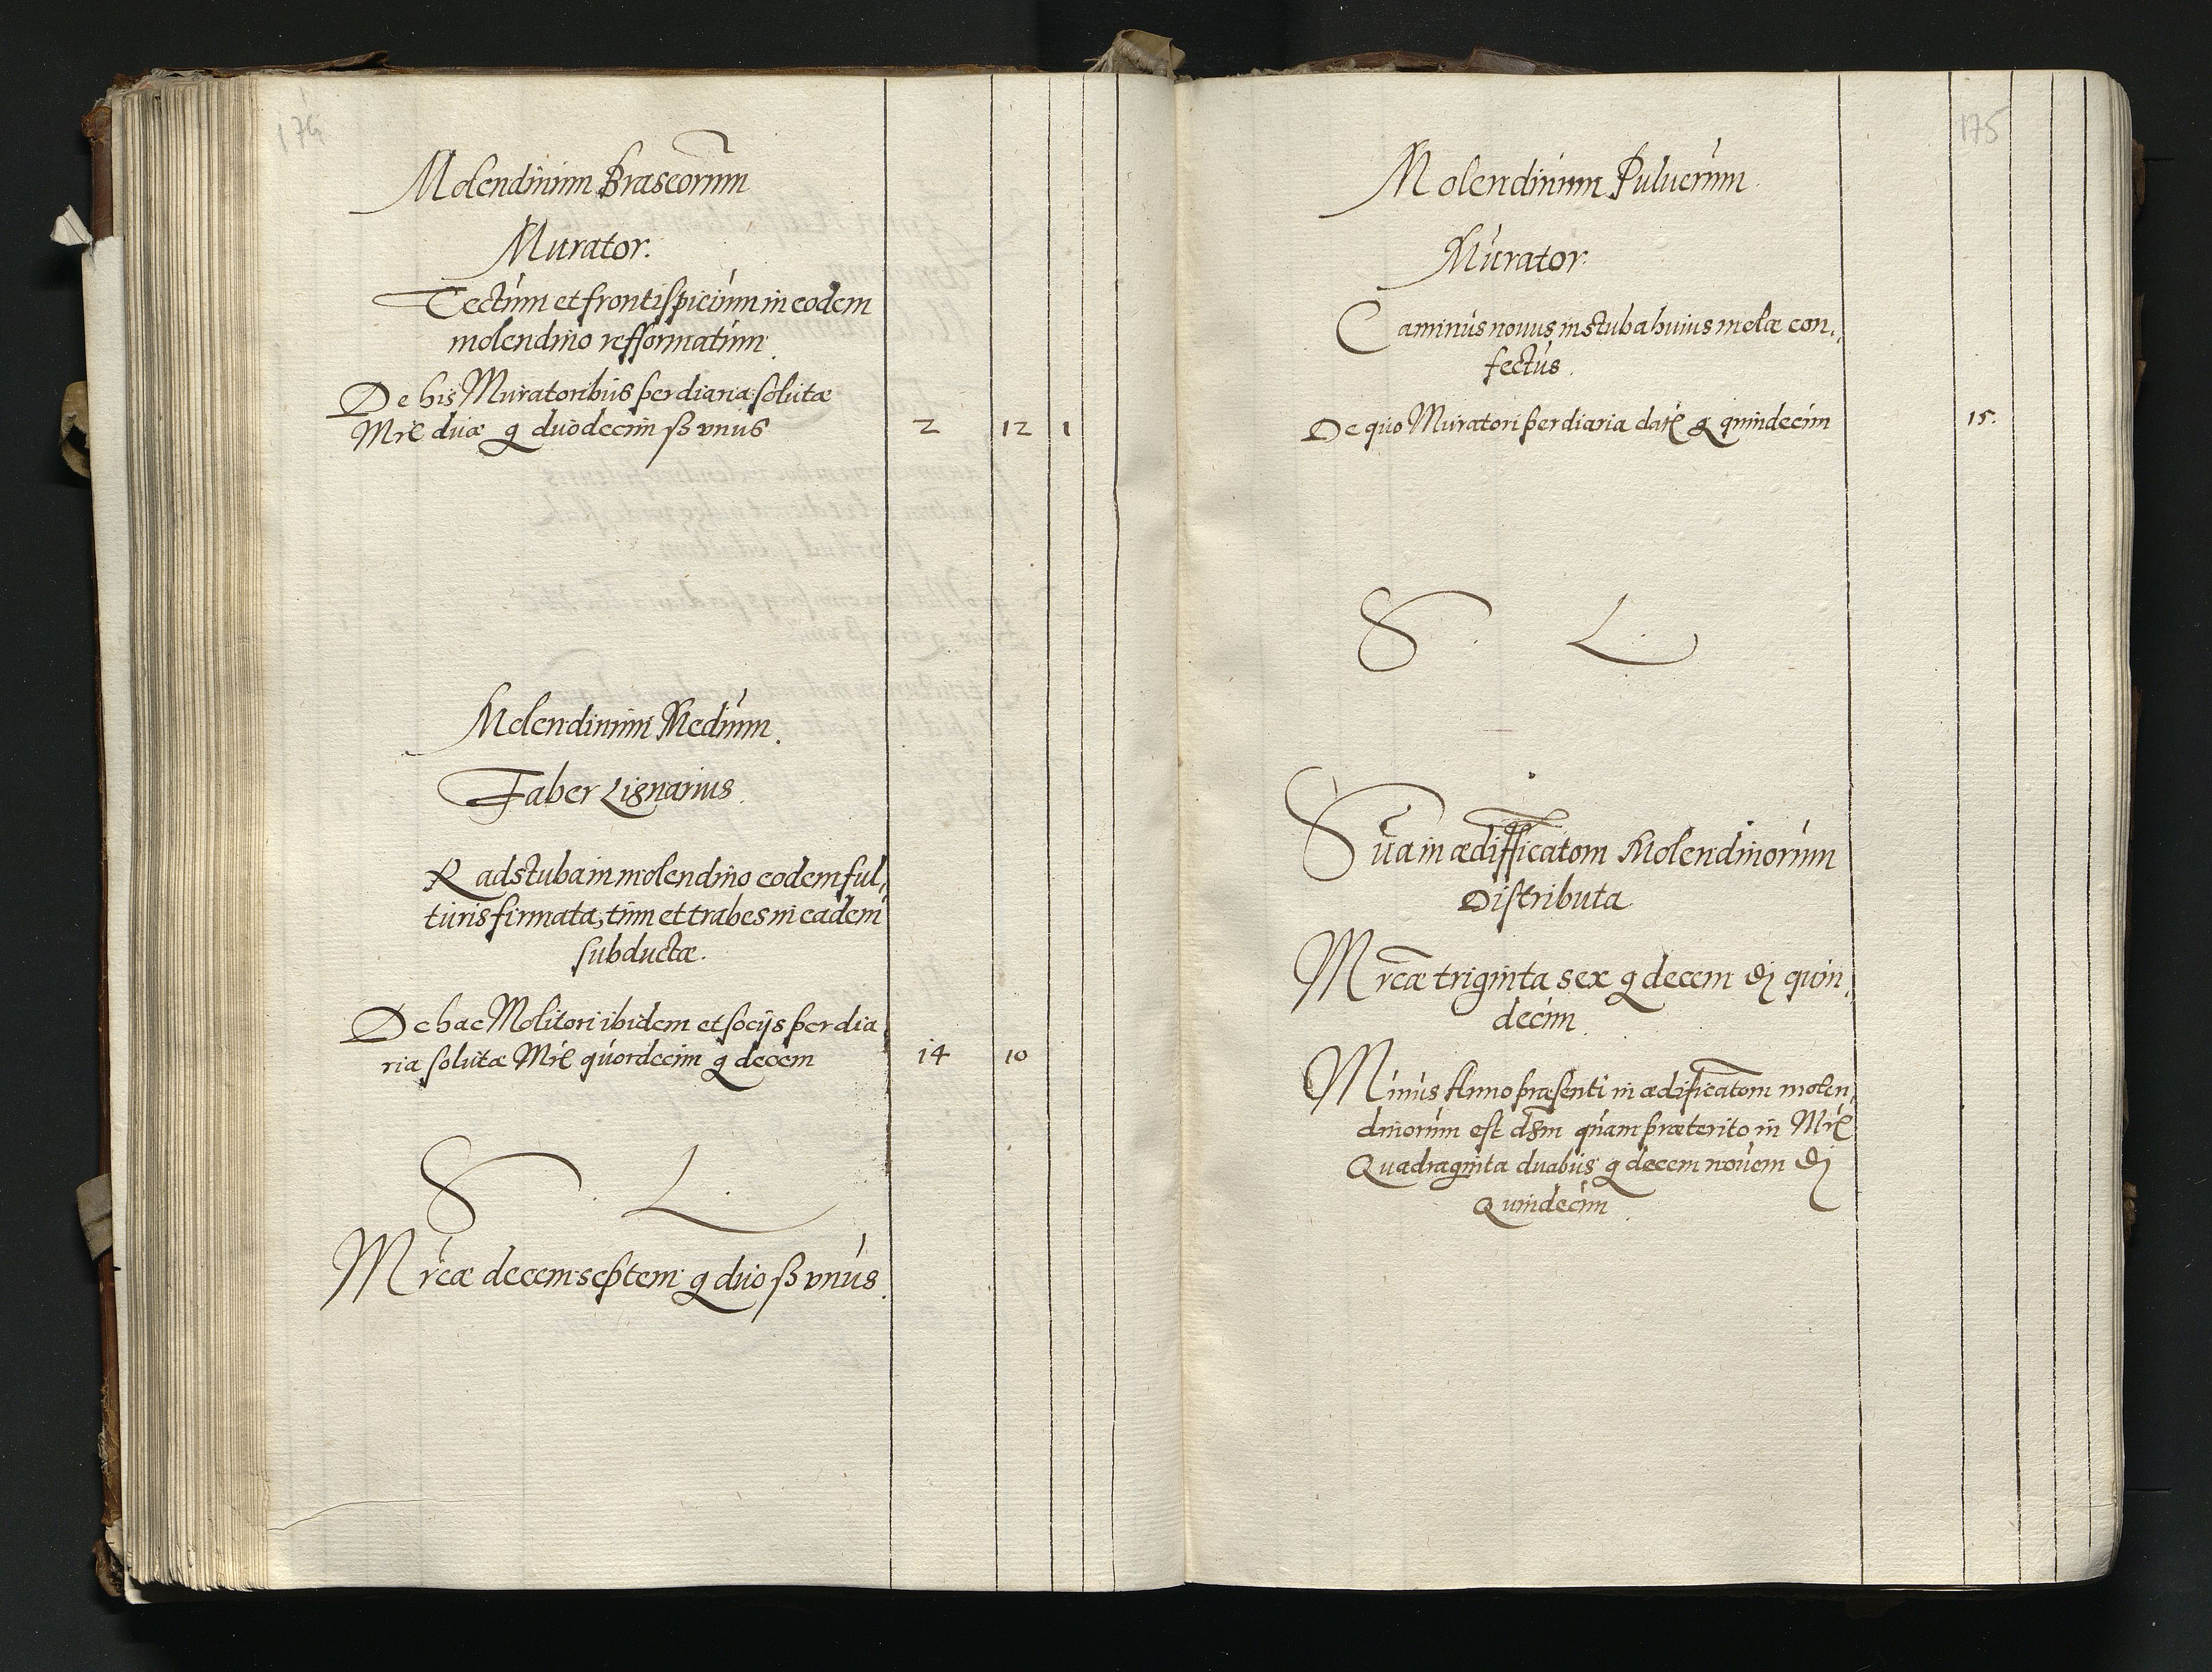 174
Molendinum Braseorum
Murator.
Tectum et frontispicium in eodem
molendino refformatum.
De his Muratoribus per diaria solutæ
Mrc duæ g duodecim ß vnus 2 12 1
Molendinum Medium.
Faber Lignarius.
Radstuba in molendino eodem ful,
turis firmata, tum et trabes in eadem
subductæ.
De hac Molitori ibidem et socijs per dia
ria solutæ Mrc quordecim g decem 14 10
S. L.
Mrcæ decem septem g duo ß vnus.
175
Molendinum Puluerum.
Murator.
Caminus nouus in stuba huius molæ con,
fectus.
De quo Muratori per diaria dat g quindecim 15.
S. L.
Sūa in ædifficatom Molendinorum
Distributa
Mrcæ triginta sex g decem quin,
decim.
Minus Anno præsenti in ædificatom molen,
dinorum est dsm quam præterito in Mrc
Quadraginta duabus g decem nouem
Quindecim.